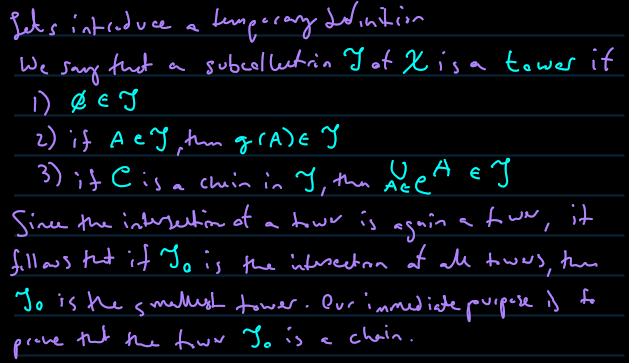 Lets introduce a temporary definition
We say that a subcollection 𝒯 of 𝒳 is a tower if
1) ∅ ∈ 𝒯
2) if A ∈ 𝒯, then g(A) ∈ 𝒯
3) if C is a chain in 𝒯, then ⋃_{A∈C} A ∈ 𝒯
Since the intersection of a tower is again a tower, it
follows tht if 𝒯₀ is the intersection of all towers, then
𝒯₀ is the smallest tower. Our immediate purpose is to
prove tht the tower 𝒯₀ is a chain.